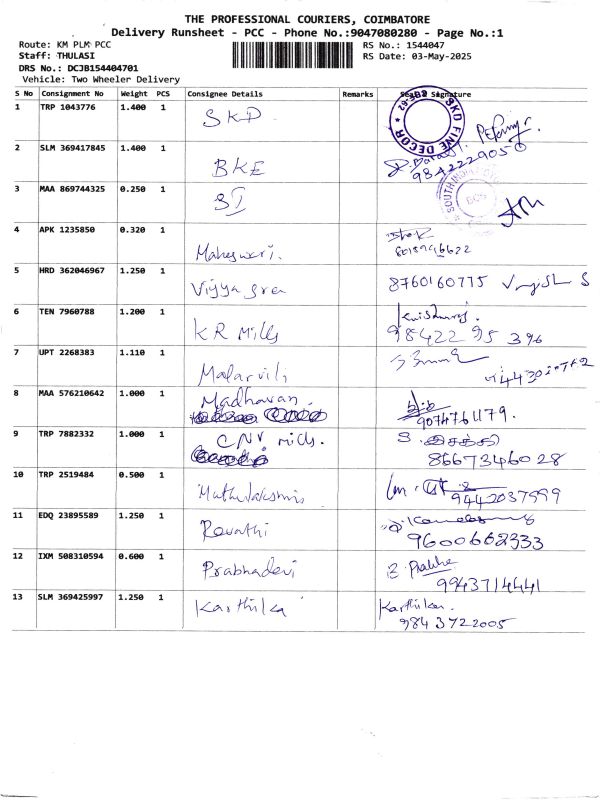 THE PROFESSIONAL COURIERS, COIMBATORE
Delivery Runsheet - PCC - Phone No.:9047080280 - Page No.:1
Route: KM PLM PCC
Staff: THULASI
DRS No.: DCJB154404701
Vehicle: Two Wheeler Delivery
RS No.: 1544047
RS Date: 03-May-2025
S No Consignment No Weight PCS Consignee Details Remarks Seal & Signature
1 TRP 1043776 1.400 1 SKD
SKD FINE DECOR
2 SLM 369417845 1.400 1 BKE 9842229050
3 MAA 869744325 0.250 1 SI
SOUTH INDIA
4 APK 1235850 0.320 1 Maheswari.
5 HRD 362046967 1.250 1 Vijyya sree 8760160775
6 TEN 7960788 1.200 1 KR Mills 98422 95 396
7 UPT 2268383 1.110 1 Malarvili
8 MAA 576210642 1.000 1 Madhavan.
9 TRP 7882332 1.000 1 CNV mills. 8667346028
10 TRP 2519484 0.500 1 9442037999
11 EDQ 23895589 1.250 1 Revathi 9600662333
12 IXM 508310594 0.600 1 Prabhadevi 9943714441
13 SLM 369425997 1.250 1 Karthika Karthika.
9843722005